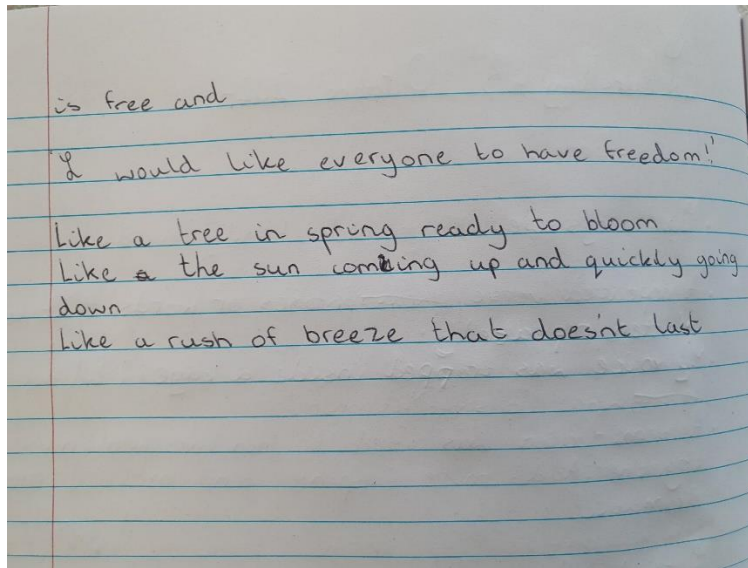 is free and
"I would like everyone to have freedom!"
Like a tree in spring ready to bloom
Like the sun coming up and quickly going
down
Like a rush of breeze that does'nt last